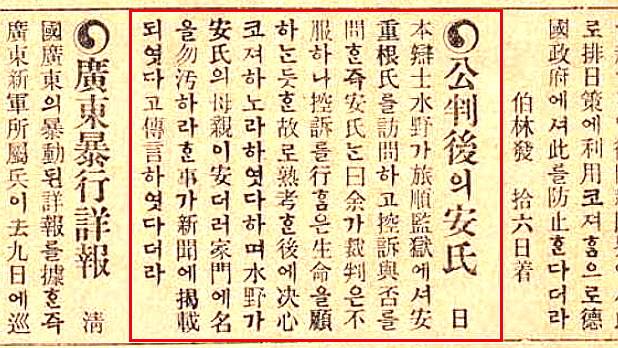 로排日策에利用코져홈으로德
國政府에셔此를防止ᄒᆞᆫ다더라
伯林發 拾六日着
公判後의安氏 日
本辯士水野가旅順監獄에셔安
重根氏를訪問하고控訴與否를
問ᄒᆞᆫ즉安氏는曰余가裁判은不
服하나控訴를行홈은生命을願
하는듯ᄒᆞᆫ故로熟考ᄒᆞᆫ後에决心
코져하노라하엿다하며水野가
安氏의母親이安더러家門에名
을勿汚하라ᄒᆞᆫ事가新聞에揭載
되엿다고傳言하엿다더라
廣東暴行詳報 淸
國廣東의暴動된詳報를據ᄒᆞᆫ즉
廣東新軍所屬兵이去九日에巡